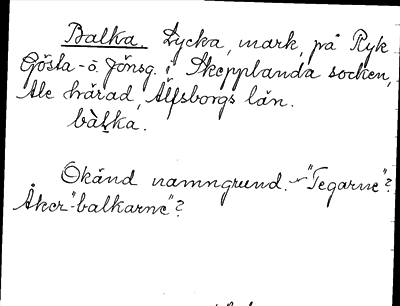 Balka. Lycka, mark, på Ryk
Gösta- o. Jönsg. i Skepplanda socken,
Ale härad, Älfsborgs län.
bàḷka.
Okänd namngrund. - "Tegarne"?
Åker "balkarne"?